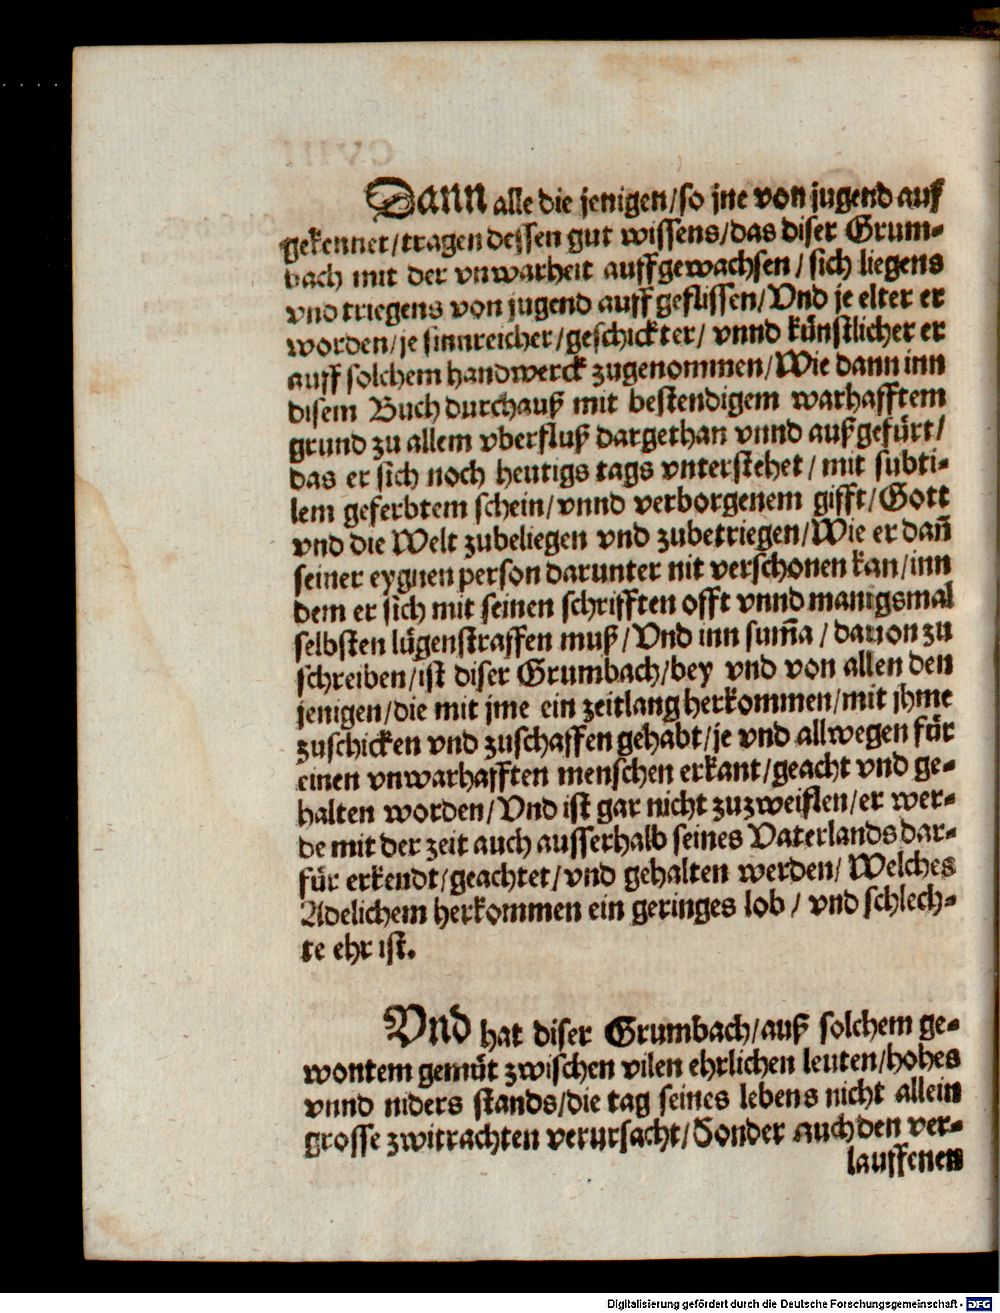 Dann alle die jenigen/so jne von jugend auf
gekennet/tragen dessen gut wissens/das diser Grum-
bach mit der vnwarheit auffgewachsen/sich liegens
vnd triegens von jugend auff geflissen/Vnd je elter er
worden/je sinnreicher/geschickter/vnnd künstlicher er
auff solchem handwerck zugenommen/Wie dann inn
disem Buch durchauß mit bestendigem warhafftem
grund zu allem vberfluß dargethan vnnd außgefürt/
das er sich noch heutigs tags vnterstehet/mit subti-
lem geferbtem schein/vnnd verborgenem gifft/Gott
vnd die Welt zubeliegen vnd zubetriegen/Wie er dañ
seiner eygnen person darunter nit verschonen kan/inn
dem er sich mit seinen schrifften offt vnnd manigsmal
selbsten lügenstraffen muß/Vnd inn sum̃a/dauon zu
schreiben/ist diser Grumbach/bey vnd von allen den
jenigen/die mit jme ein zeitlang herkommen/mit jhme
zuschicken vnd zuschaffen gehabt/je vnd allwegen für
einen vnwarhafften menschen erkant/geacht vnd ge-
halten worden/Vnd ist gar nicht zuzweiflen/er wer-
de mit der zeit auch ausserhalb seines Vaterlands dar-
für erkendt/geachtet/vnd gehalten werden/Welches
Adelichem herkommen ein geringes lob/vnd schlech-
te ehr ist.
Vnd hat diser Grumbach/auß solchem ge-
wontem gemüt zwischen vilen ehrlichen leuten/hohes
vnnd niders stands/die tag seines lebens nicht allein
grosse zwitrachten verursacht/Sonder auch den ver-
lauffenen
Digitalisierung gefördert durch die Deutsche Forschungsgemeinschaft - DFG